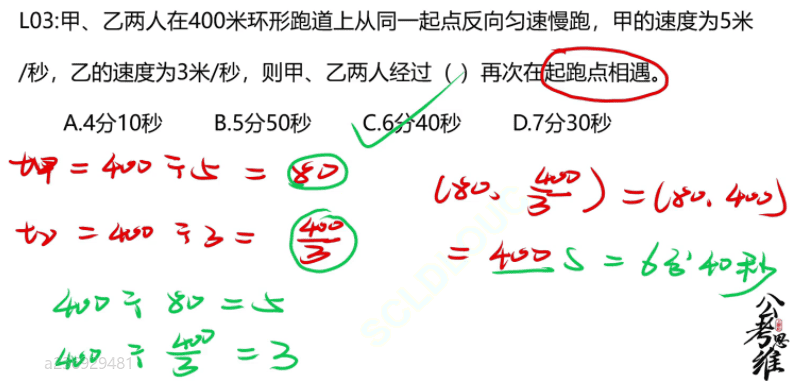 L03:甲、乙两人在400米环形跑道上从同一起点反向匀速慢跑，甲的速度为5米
/秒，乙的速度为3米/秒，则甲、乙两人经过（ ）再次在起跑点相遇。
A.4分10秒 B.5分50秒 C.6分40秒 D.7分30秒
t甲 = 400 ÷ 5 = 80
t乙 = 400 ÷ 3 = 400/3
400 ÷ 80 = 5
400 ÷ 400/3 = 3
(80、400/3) = (80、400)
= 400 S = 6分40秒
公考思维